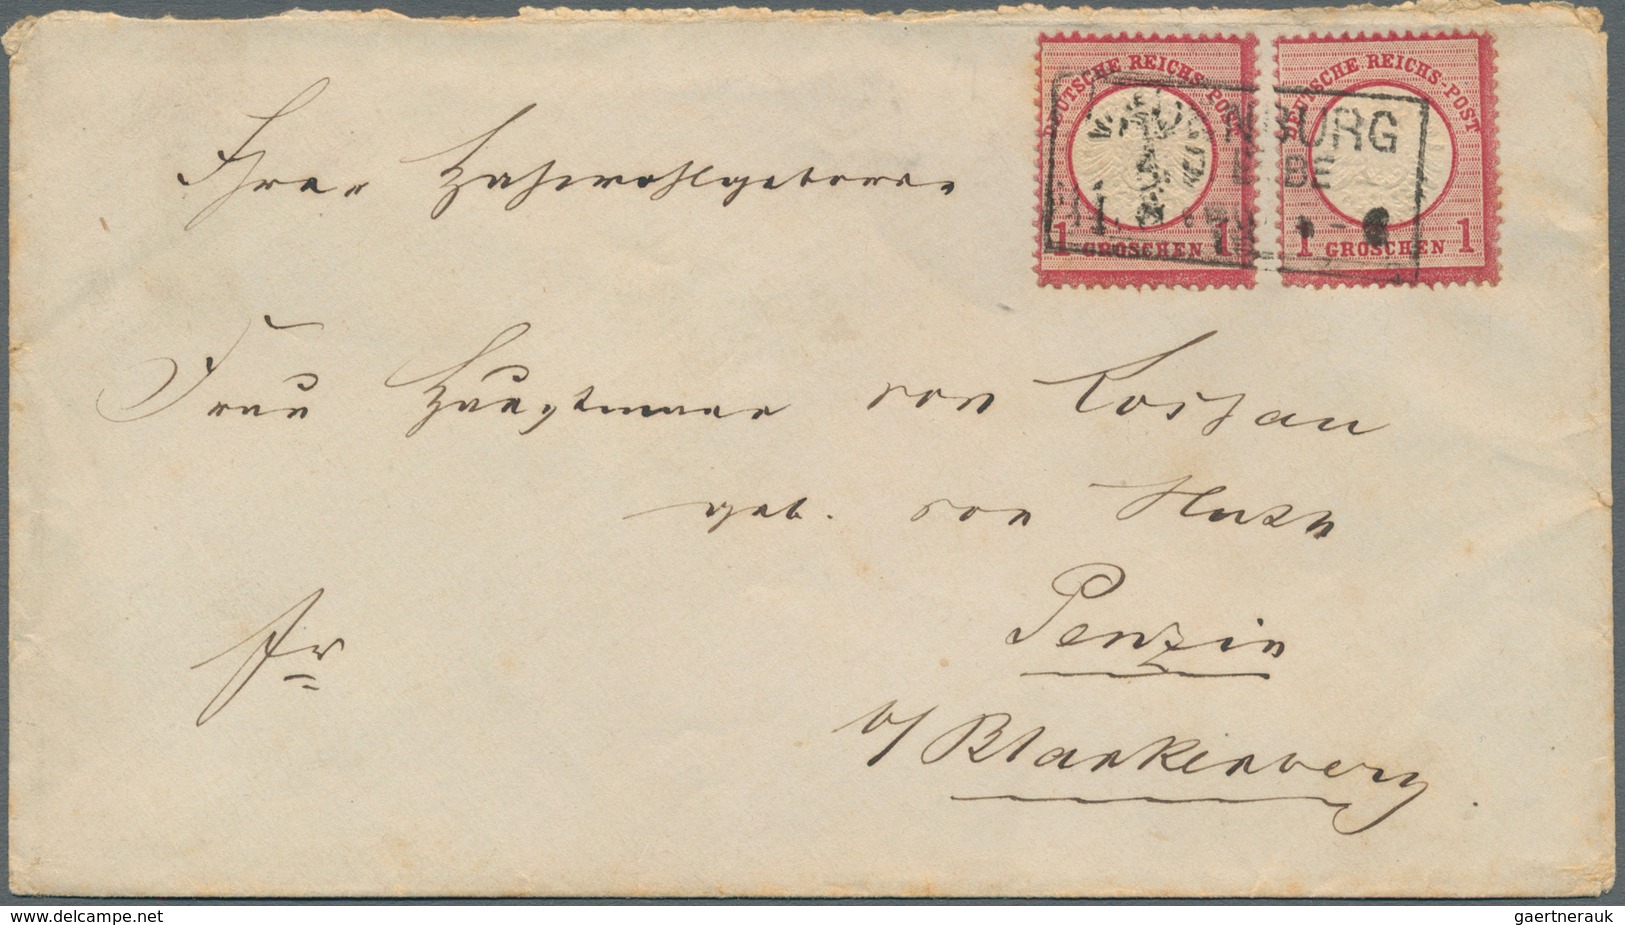 DEUTSCHE REICHS-POST
1 GROSCHEN 1
DEUTSCHE REICHS-POST
1 GROSCHEN 1
NBURG
Ihrer Hochwohlgeboren
Frau Hauptmann von
geb. von
Penzin
b/ Blankenberg.
fr
www.delcampe.net
gaertnerauk